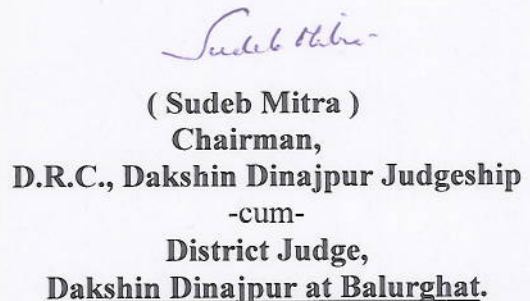 Sudeb Mitra
( Sudeb Mitra )
Chairman,
D.R.C., Dakshin Dinajpur Judgeship
-cum-
District Judge,
Dakshin Dinajpur at Balurghat.